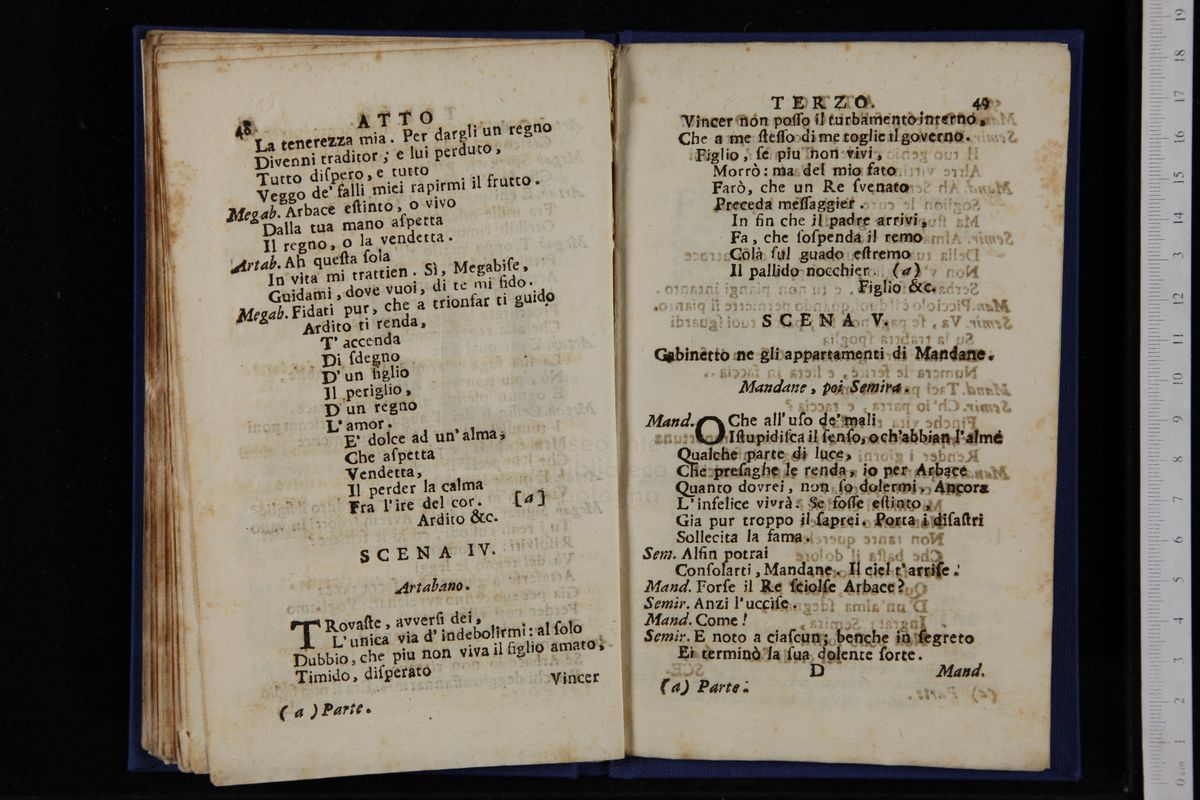 48 ATTO
La tenerezza mia. Per dargli un regno
Divenni traditor; e lui perduto,
Tutto diſpero, e tutto
Veggo de' falli miei rapirmi il frutto.
Megab. Arbace eſtinto, o vivo
Dalla tua mano aſpetta
Il regno, o la vendetta.
Artab. Ah queſta ſola
In vita mi trattien. Sì, Megabiſe,
Guidami, dove vuoi, di te mi fido.
Megab. Fidati pur, che a trionfar ti guido
Ardito ti renda,
T' accenda
Di ſdegno
D' un figlio
Il periglio,
D' un regno
L' amor.
E' dolce ad un' alma,
Che aſpetta
Vendetta,
Il perder la calma
Fra l' ire del cor. [a]
Ardito &c.
SCENA IV.
Artabano.
TRovaſte, avverſi dei,
L' unica via d' indebolirmi: al ſolo
Dubbio, che piu non viva il figlio amato,
Timido, diſperato
Vincer
(a) Parte.
TERZO. 49
Vincer non poſſo il turbamento interno,
Che a me ſteſſo di me toglie il governo.
Figlio, ſe piu non vivi,
Morrò: ma del mio fato
Farò, che un Re ſvenato
Preceda meſſaggier.
In fin che il padre arrivi,
Fa, che ſoſpenda il remo
Colà ſul guado eſtremo
Il pallido nocchier. (a)
Figlio &c.
SCENA V.
Gabinetto ne gli appartamenti di Mandane.
Mandane, poi Semira.
Mand. O Che all' uſo de' mali
Iſtupidiſca il ſenſo, o ch' abbian l' alme
Qualche parte di luce,
Che preſaghe le renda, io per Arbace
Quanto dovrei, non ſo dolermi. Ancora
L' infelice vivrà. Se foſſe eſtinto,
Gia pur troppo il ſaprei. Porta i diſaſtri
Sollecita la fama.
Sem. Alfin potrai
Conſolarti, Mandane. Il ciel t' arriſe.
Mand. Forſe il Re ſciolſe Arbace?
Semir. Anzi l' ucciſe.
Mand. Come!
Semir. E noto a ciaſcun; benche in ſegreto
Ei terminò la ſua dolente ſorte.
D Mand.
(a) Parte.